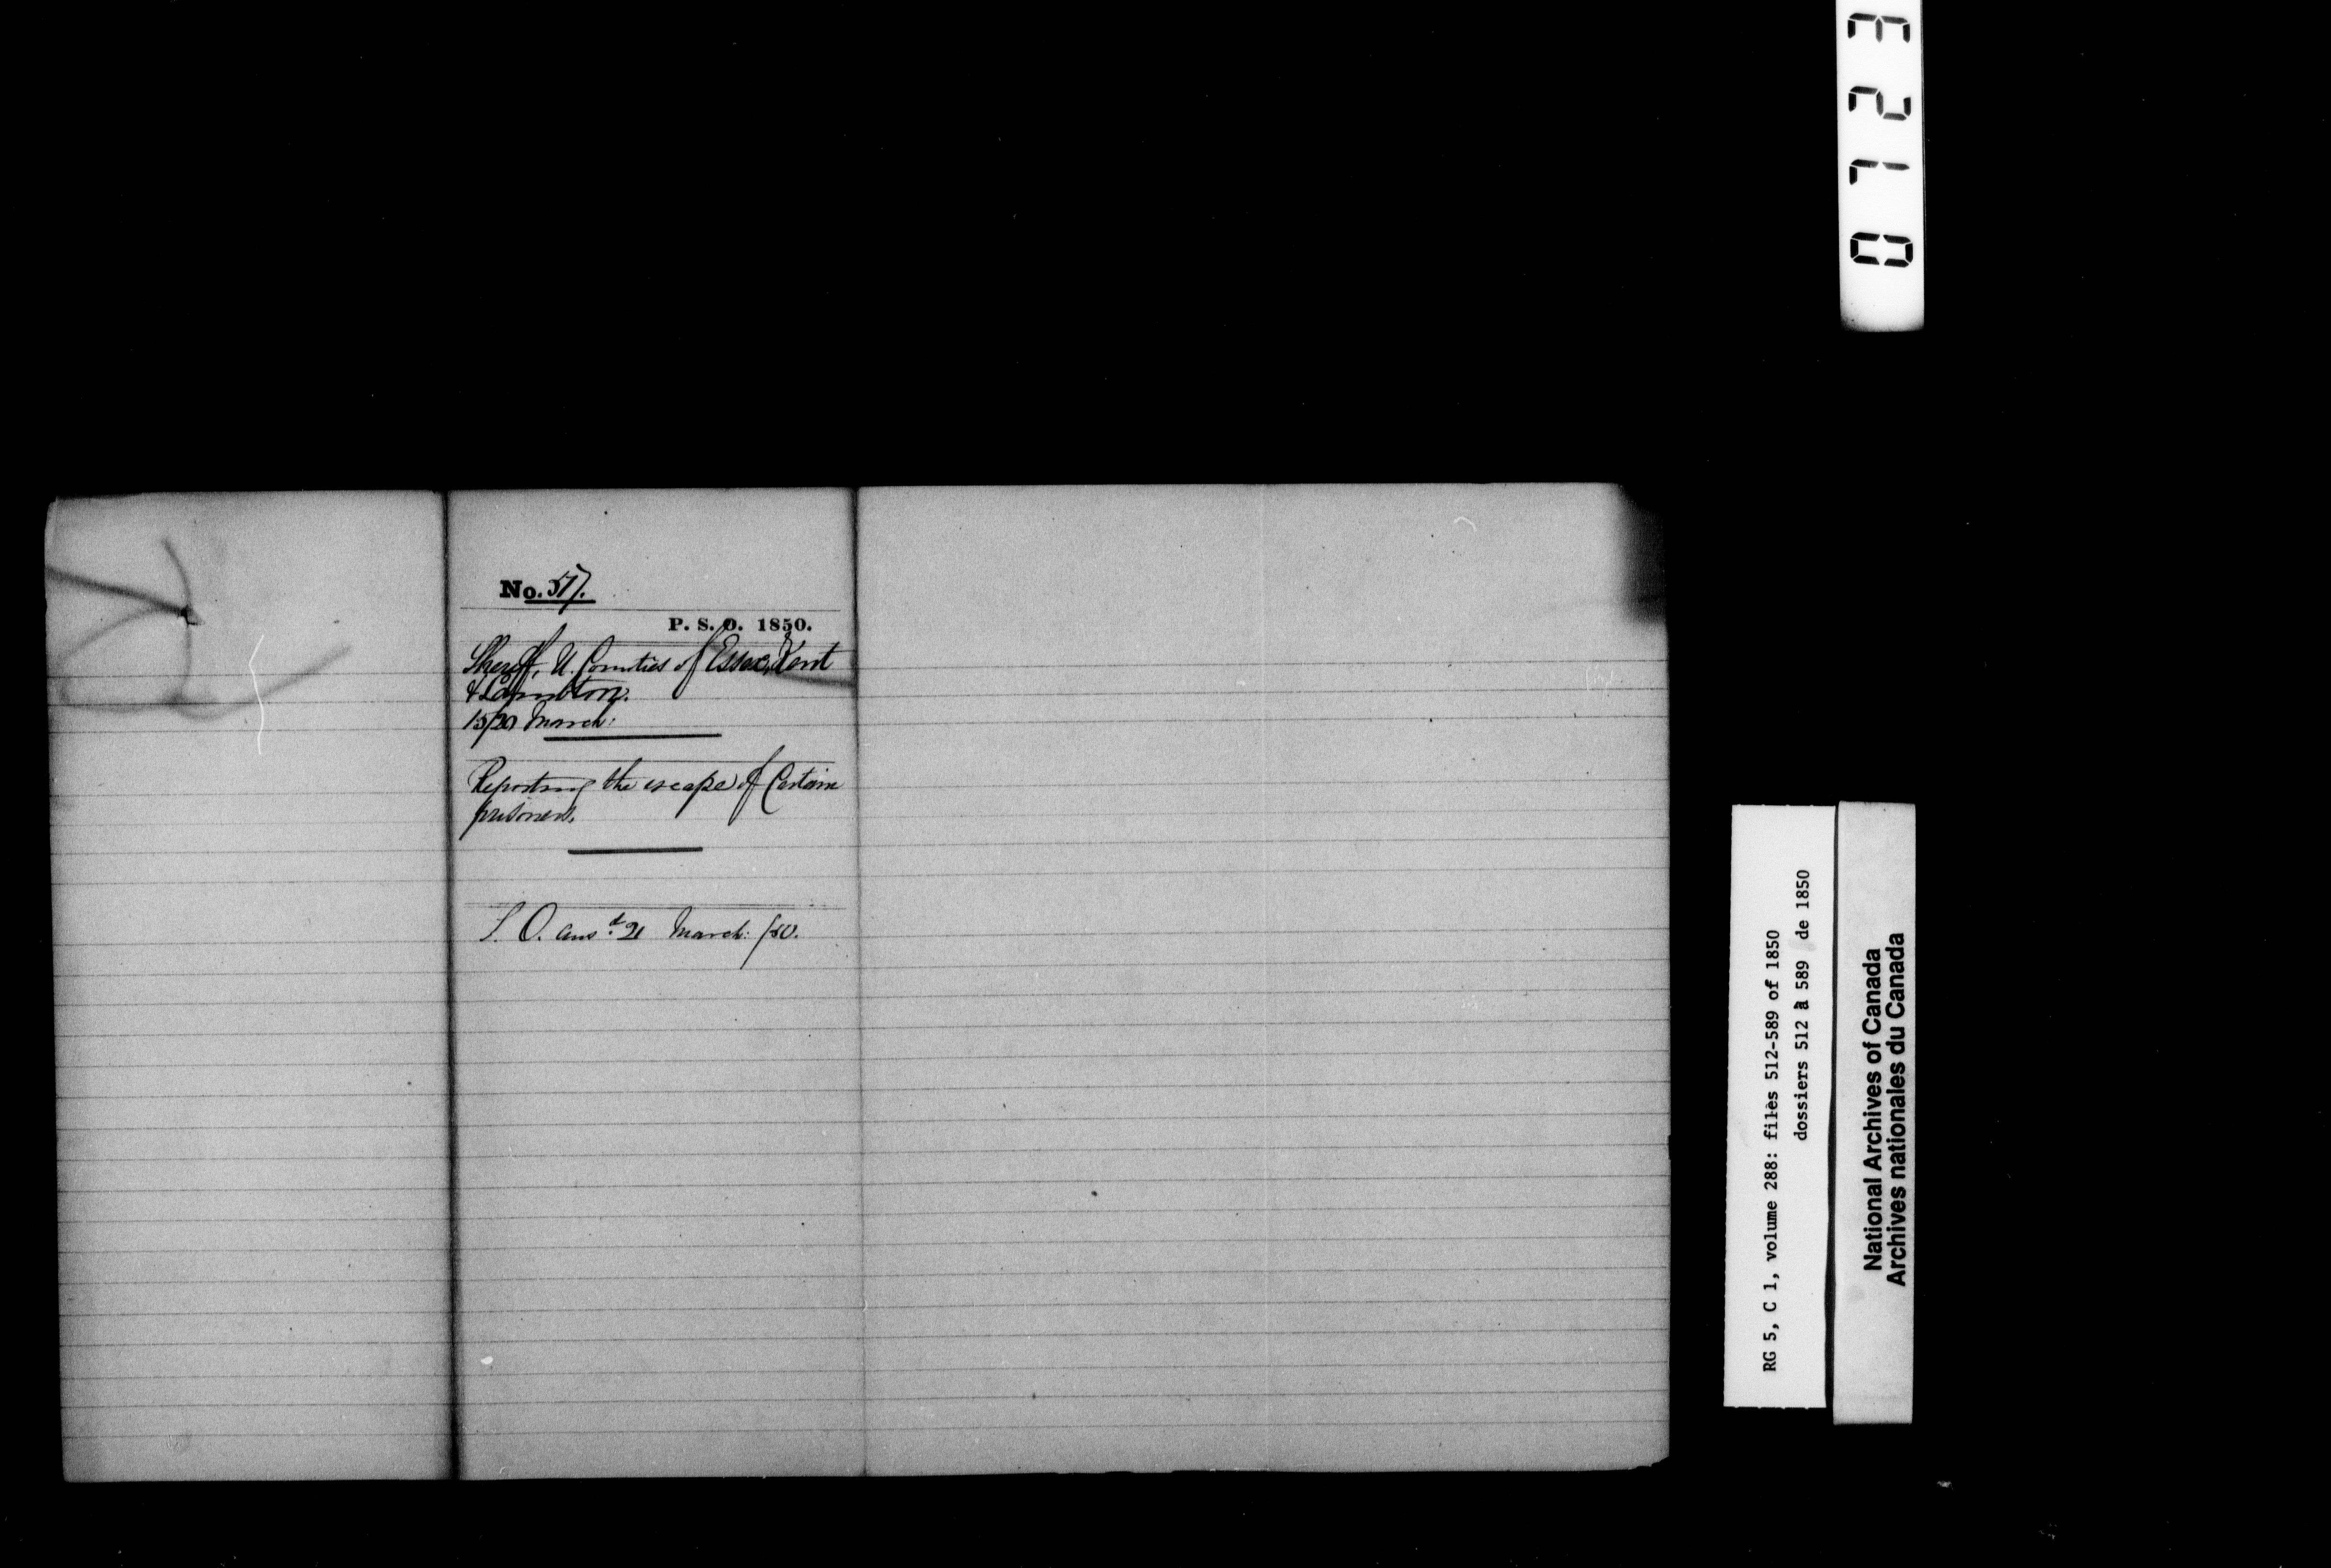 No. 517.
P. S. O. 1850.
Sheriff, U. Counties of Essex, Kent
& Lambton.
15/20 March:
Reporting the escape of Certain
prisoners.
S. O. ansd. 21 March: /50.
0123
RG 5, C 1, volume 288: files 512-589 of 1850
dossiers 512 à 589 de 1850
National Archives of Canada
Archives nationales du Canada